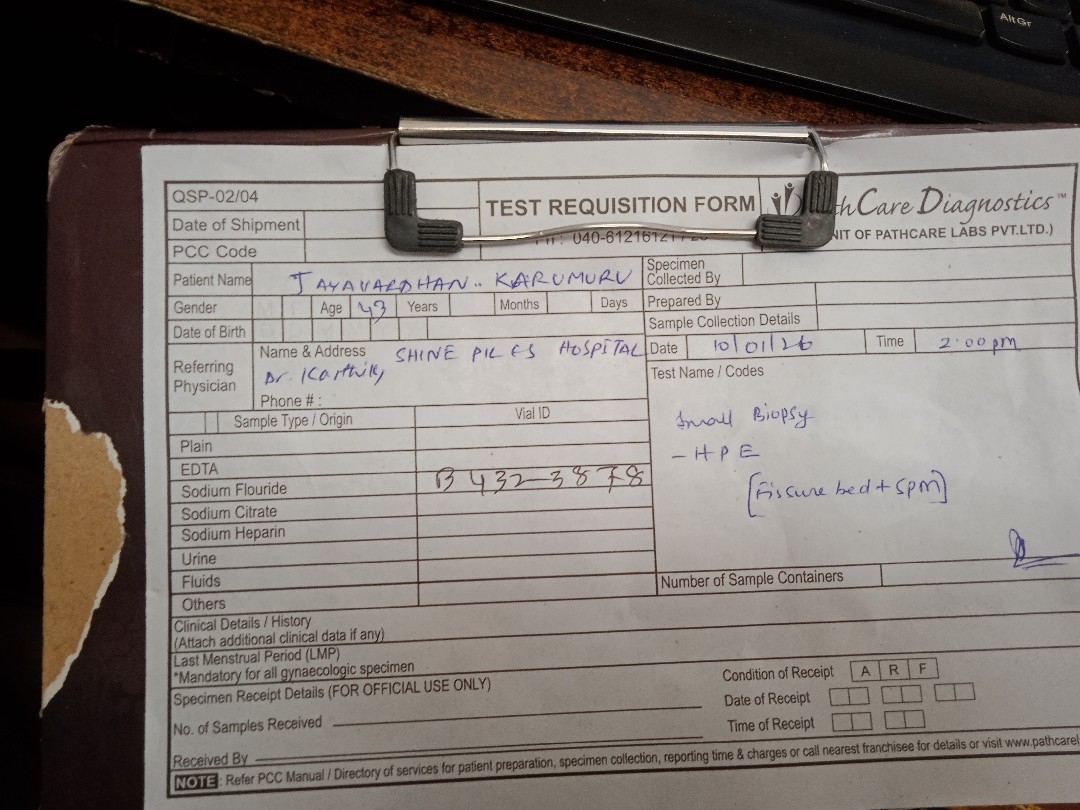 AltGr
QSP-02/04
TEST REQUISITION FORM
Care Diagnostics™
NIT OF PATHCARE LABS PVT.LTD.)
Date of Shipment
PCC Code
040-6121612
Patient Name JAYAVARDHAN.. KARUMURU
Specimen Collected By
Gender M F Age 43 Years Months Days
Prepared By
Date of Birth
Sample Collection Details
Referring Physician
Name & Address SHINE PILES HOSPITAL
Dr. Karthik
Phone # :
Date 10/01/26 Time 2:00 pm
Test Name / Codes
Small Biopsy
- HPE
[Fissure bed + SPM]
Sample Type / Origin Vial ID
Plain
EDTA
Sodium Flouride B 432 3878
Sodium Citrate
Sodium Heparin
Urine
Fluids
Others
Number of Sample Containers
Clinical Details / History
(Attach additional clinical data if any)
Last Menstrual Period (LMP)
*Mandatory for all gynaecologic specimen
Specimen Receipt Details (FOR OFFICIAL USE ONLY)
No. of Samples Received
Received By
Condition of Receipt A R F
Date of Receipt
Time of Receipt
NOTE : Refer PCC Manual / Directory of services for patient preparation, specimen collection, reporting time & charges or call nearest franchisee for details or visit www.pathcarel